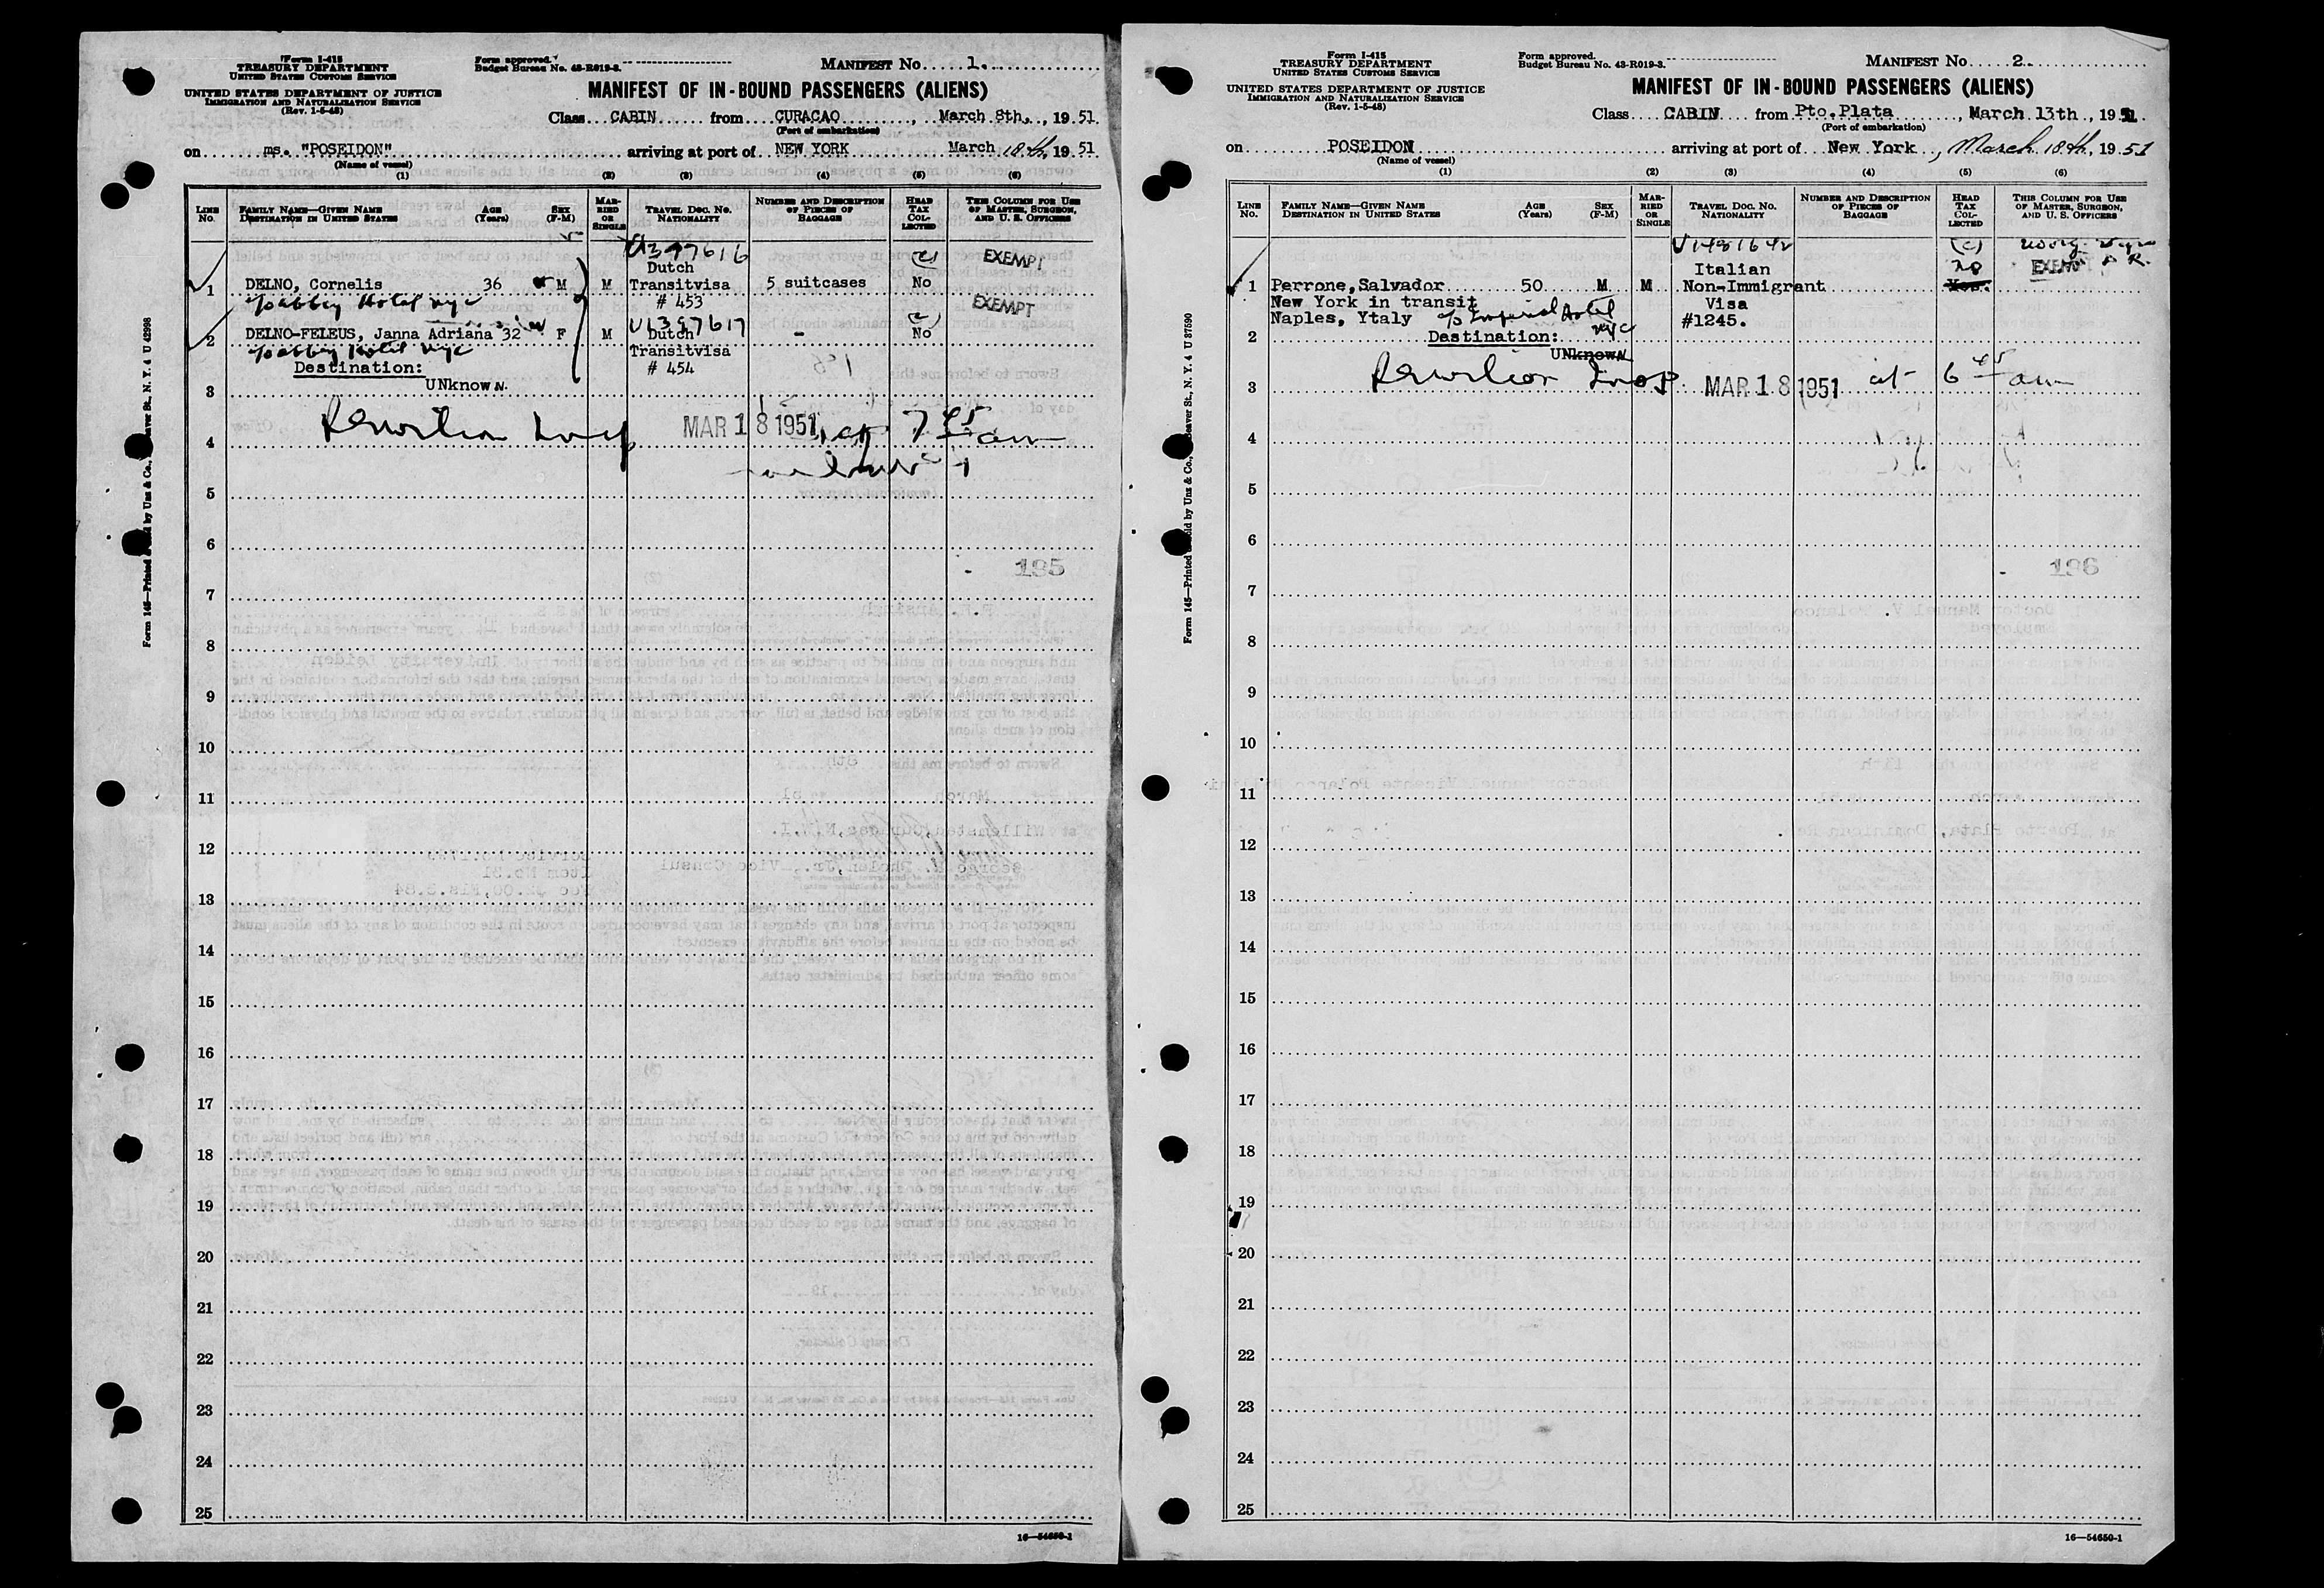 Form I-415
TREASURY DEPARTMENT
UNITED STATES CUSTOMS SERVICE
UNITED STATES DEPARTMENT OF JUSTICE
IMMIGRATION AND NATURALIZATION SERVICE
(Rev. 1-5-48)
Form approved.
Budget Bureau No. 43-R019-3.
MANIFEST No. 1.
MANIFEST OF IN-BOUND PASSENGERS (ALIENS)
Class CABIN from CURACAO, March 8th., 19 51.
(Port of embarkation)
on ms. "POSEIDON" arriving at port of NEW YORK March 18th, 19 51
(Name of vessel)
(1) (2) (3) (4) (5) (6)
LINE No.
FAMILY NAME—GIVEN NAME
DESTINATION IN UNITED STATES
AGE (Years)
SEX (F-M)
MARRIED OR SINGLE
TRAVEL DOC. No.
NATIONALITY
NUMBER AND DESCRIPTION OF PIECES OF BAGGAGE
HEAD TAX COLLECTED
THIS COLUMN FOR USE OF MASTER, SURGEON, AND U. S. OFFICERS
V1397616
Dutch
EXEMPT
1 DELNO, Cornelis 36 M M Transitvisa 5 suitcases No
Abbey Hotel NYC
# 453
EXEMPT
V1397617
2 DELNO-FELEUS, Janna Adriana 32 F M Dutch - No
Abbey Hotel NYC
Transitvisa
Destination: # 454
UNknowN.
3
MAR 18 1951 at 7 45 am
4
5
6
195
7
8
9
10
11
12
13
14
15
16
17
18
19
20
21
22
23
24
25
16—54650-1
Form 145—Printed and Sold by Unz & Co., Beaver St., N. Y. 4 U 42998
Form I-415
TREASURY DEPARTMENT
UNITED STATES CUSTOMS SERVICE
UNITED STATES DEPARTMENT OF JUSTICE
IMMIGRATION AND NATURALIZATION SERVICE
(Rev. 1-5-48)
Form approved.
Budget Bureau No. 43-R019-3.
MANIFEST No. 2.
MANIFEST OF IN-BOUND PASSENGERS (ALIENS)
Class CABIN from Pto.Plata, March 13th, 19 51.
(Port of embarkation)
on POSEIDON arriving at port of New York, March 18th, 19 51
(Name of vessel)
(1) (2) (3) (4) (5) (6)
LINE No.
FAMILY NAME—GIVEN NAME
DESTINATION IN UNITED STATES
AGE (Years)
SEX (F-M)
MARRIED OR SINGLE
TRAVEL DOC. No.
NATIONALITY
NUMBER AND DESCRIPTION OF PIECES OF BAGGAGE
HEAD TAX COLLECTED
THIS COLUMN FOR USE OF MASTER, SURGEON, AND U. S. OFFICERS
V1481642
Italian no EXEMPT
1 Perrone,Salvador 50 M M Non-Immigrant Yes.
New York in transit Visa
Naples, Ytaly Imperial Hotel NYC #1245.
2 Destination:
UNknowN
3 MAR 18 1951 at 6 45 am
4
5
6
196
7
8
9
10
11
12
13
14
15
16
17
18
19
20
21
22
23
24
25
16—54650-1
Form 145—Printed and Sold by Unz & Co., Beaver St., N. Y. 4 U 37590